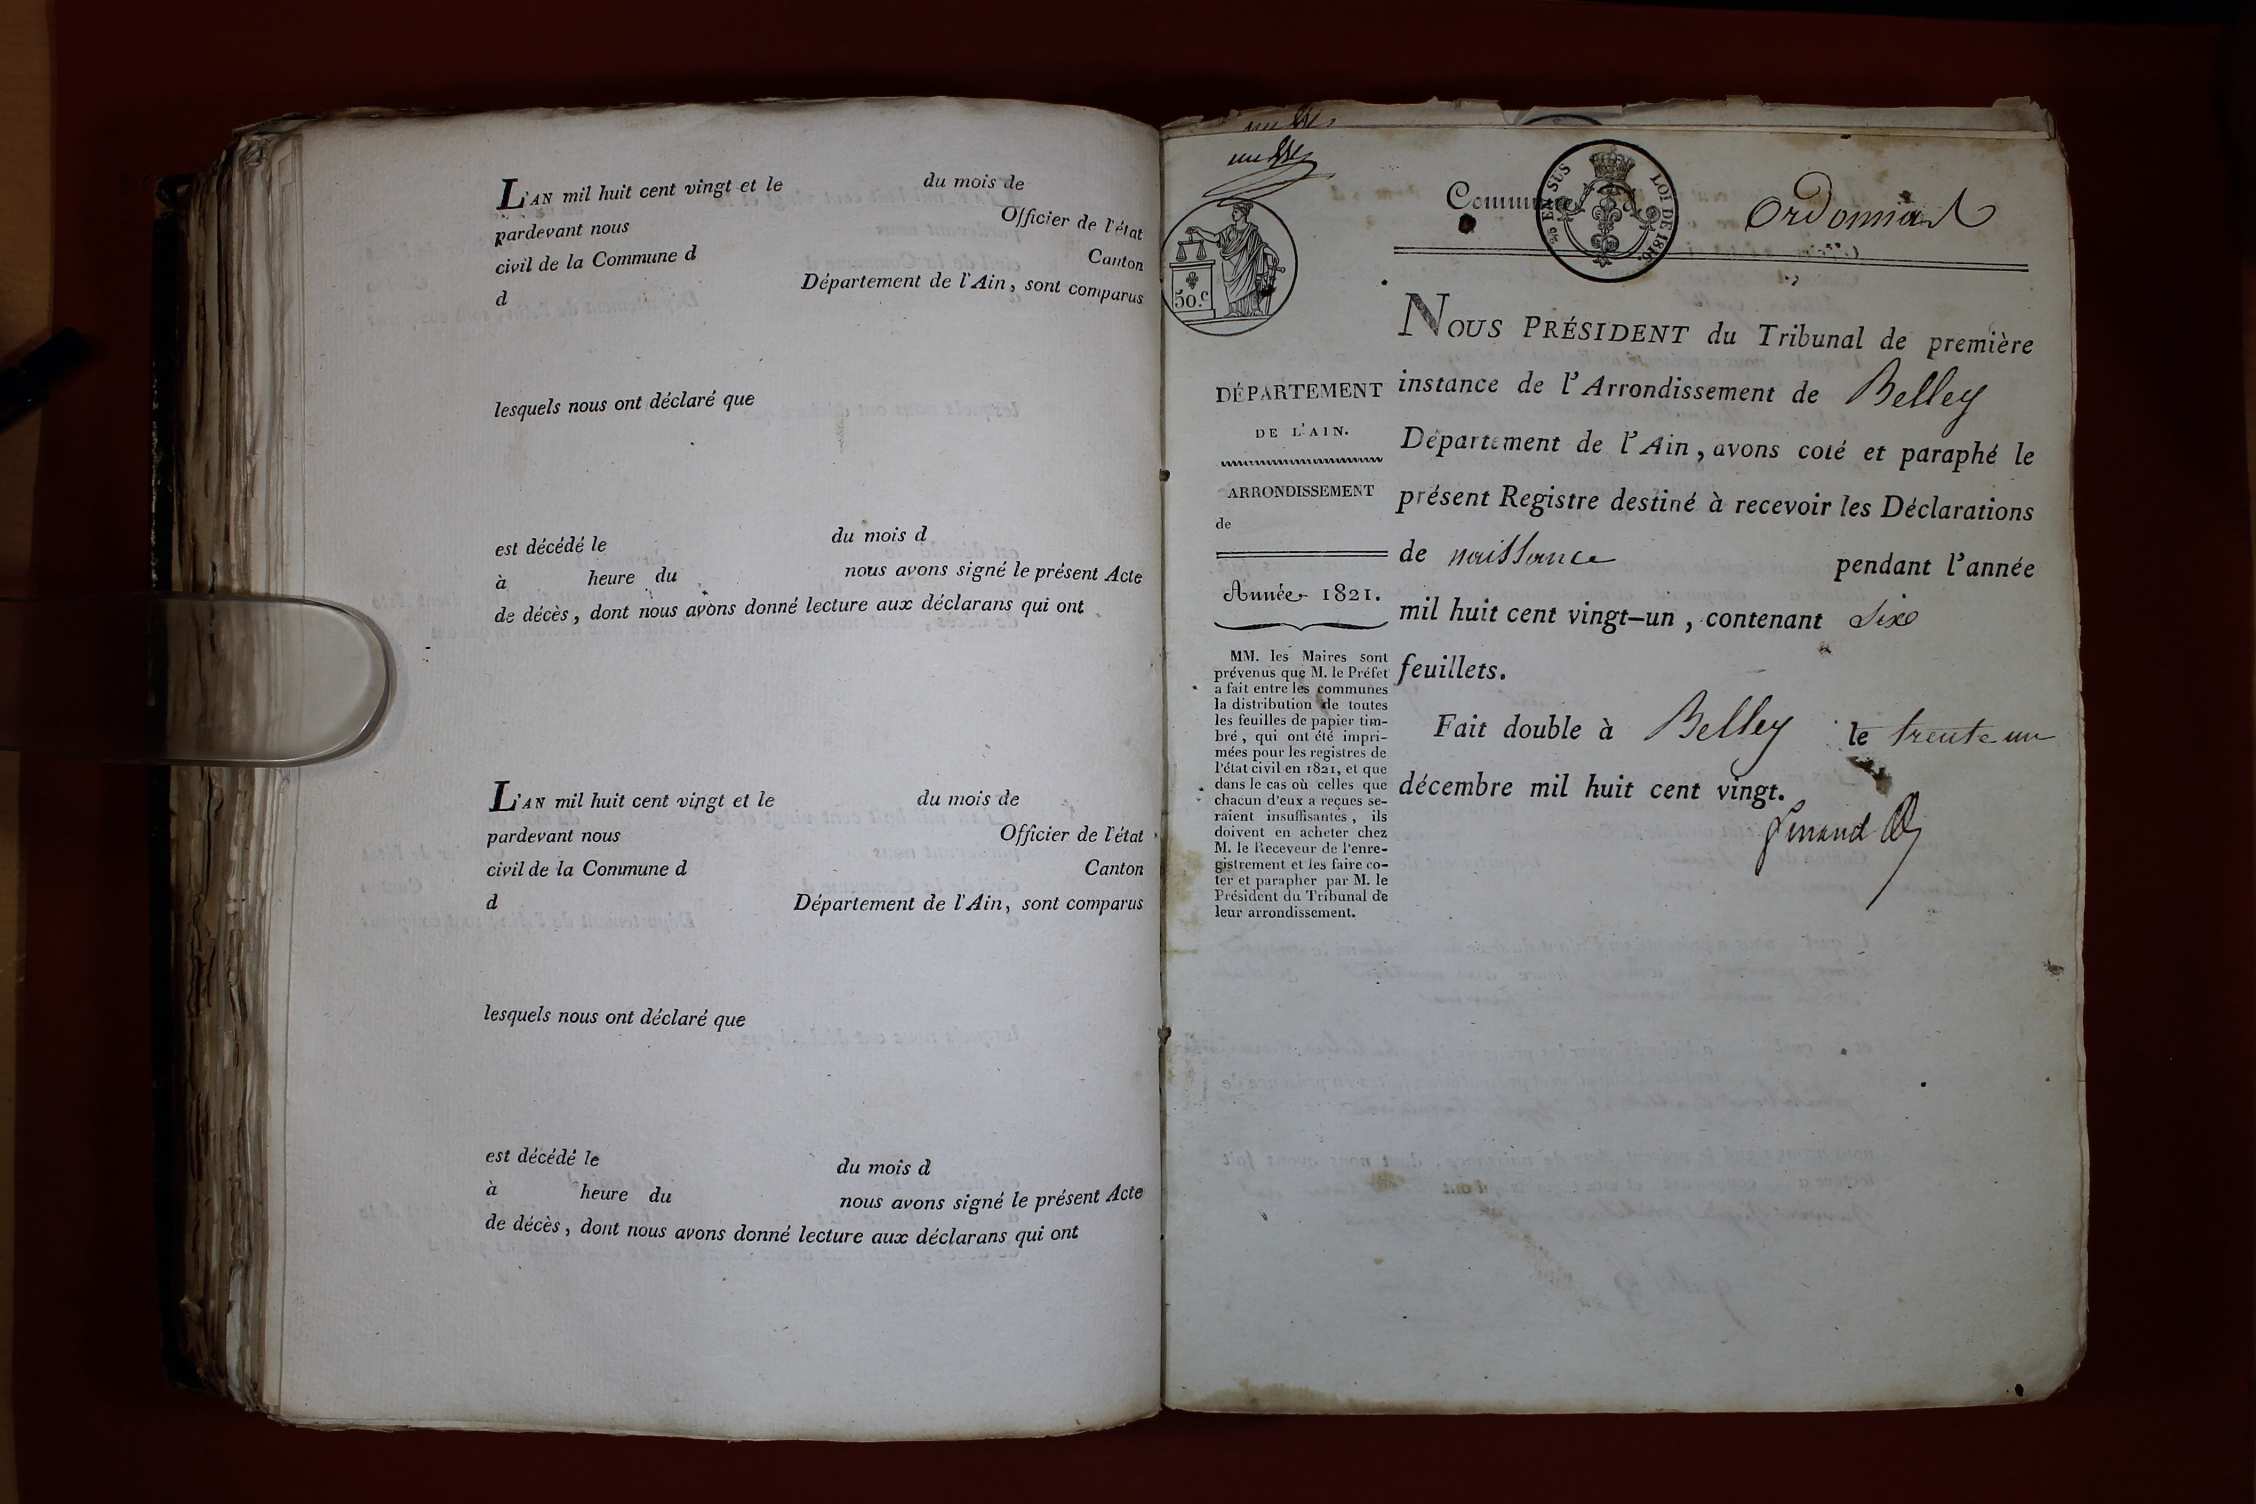 L'AN mil huit cent vingt et le du mois de
pardevant nous Officier de l'état
civil de la Commune d Canton
d Département de l'Ain, sont comparus
lesquels nous ont déclaré que
est décédé le du mois d
à heure du nous avons signé le présent Acte
de décès, dont nous avons donné lecture aux déclarans qui ont
L'AN mil huit cent vingt et le du mois de
pardevant nous Officier de l'état
civil de la Commune d Canton
d Département de l'Ain, sont comparus
lesquels nous ont déclaré que
est décédé le du mois d
à heure du nous avons signé le présent Acte
de décès, dont nous avons donné lecture aux déclarans qui ont
50.c
EN SUS LOI DE 1816.
Commune
DÉPARTEMENT
DE L'AIN.
ARRONDISSEMENT
de
Année 1821.
MM. les Maires sont
prévenus que M. le Préfet
a fait entre les communes
la distribution de toutes
les feuilles de papier tim-
bré, qui ont été impri-
mées pour les registres de
l'état civil en 1821, et que
dans le cas où celles que
chacun d'eux a reçues se-
raient insuffisantes, ils
doivent en acheter chez
M. le Receveur de l'enre-
gistrement et les faire co-
ter et parapher par M. le
Président du Tribunal de
leur arrondissement.
NOUS PRÉSIDENT du Tribunal de première
instance de l'Arrondissement de Belley
Département de l'Ain, avons coté et paraphé le
présent Registre destiné à recevoir les Déclarations
de naissance pendant l'année
mil huit cent vingt-un, contenant Six
feuillets.
Fait double à Belley le trente un
décembre mil huit cent vingt.